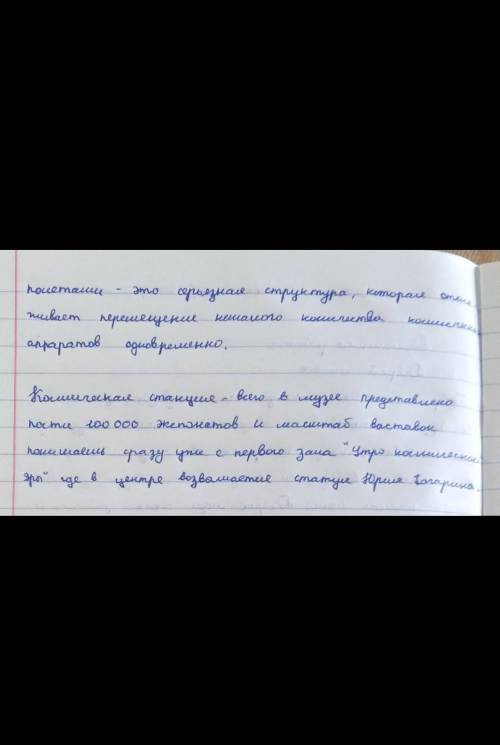 полетами - это серьезная структура, которая отсле
живает перемещение немалого количества космических
аппаратов одновременно.
Космическая станция - всего в музее представлено
почти 100 000 экспонатов и масштаб выставок
понимаешь сразу уже с первого зала "Утро космической
эры" где в центре возвышается статуя Юрия Гагарина.